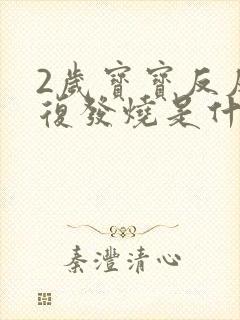 2歲寶寶反
復發燒是什
秦灃清心